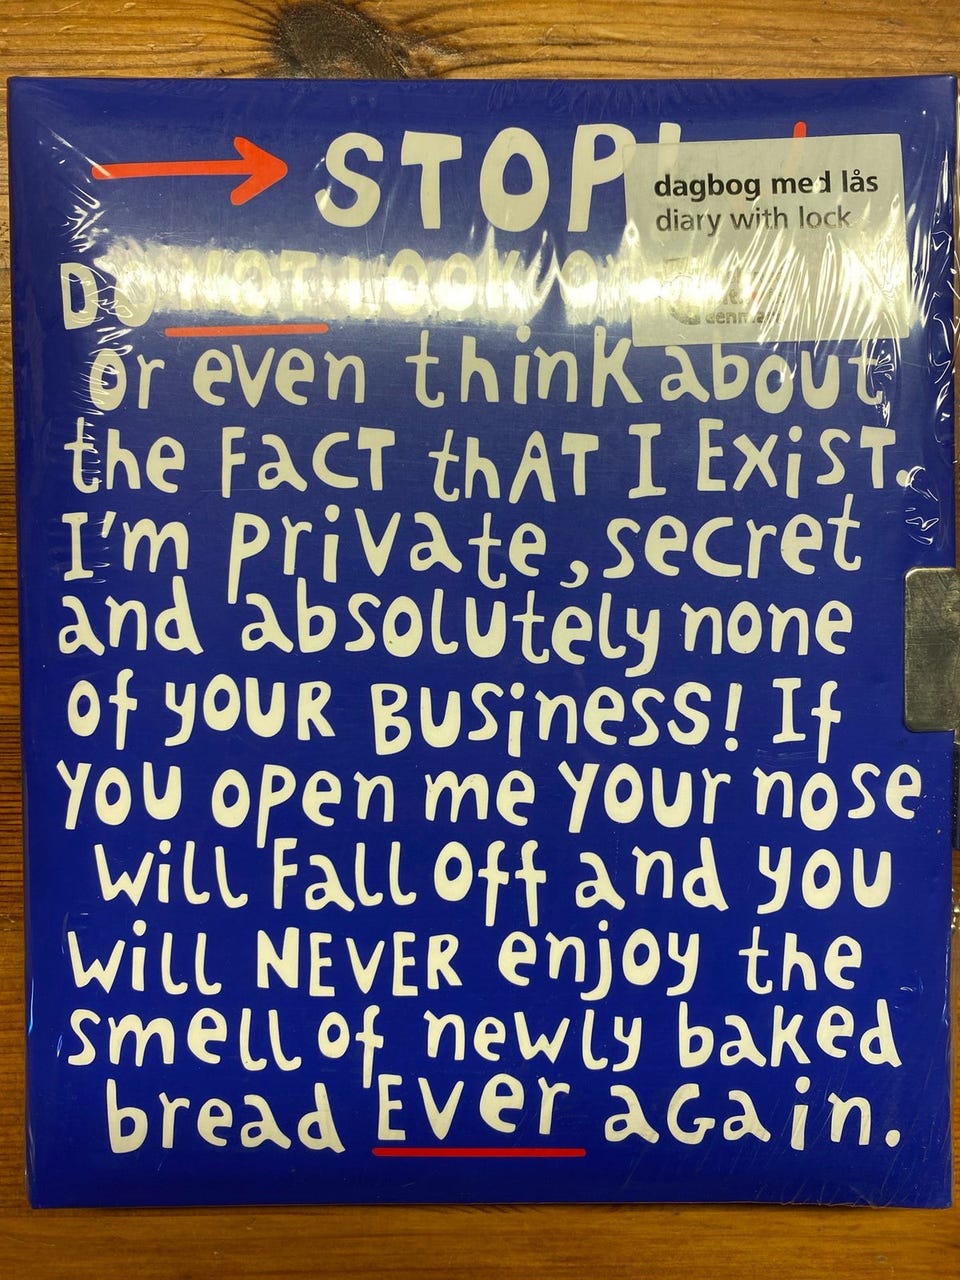 STOP!
dagbog med lås
diary with lock
DO NOT LOOK
denmark
or even think about
the FACT thAT I EXiST.
I'm private, secret
and absolutely none
of your BUSiness! If
you open me your nose
will Fall off and you
will NEVER enjoy the
smell of newly baked
bread Ever aGain.